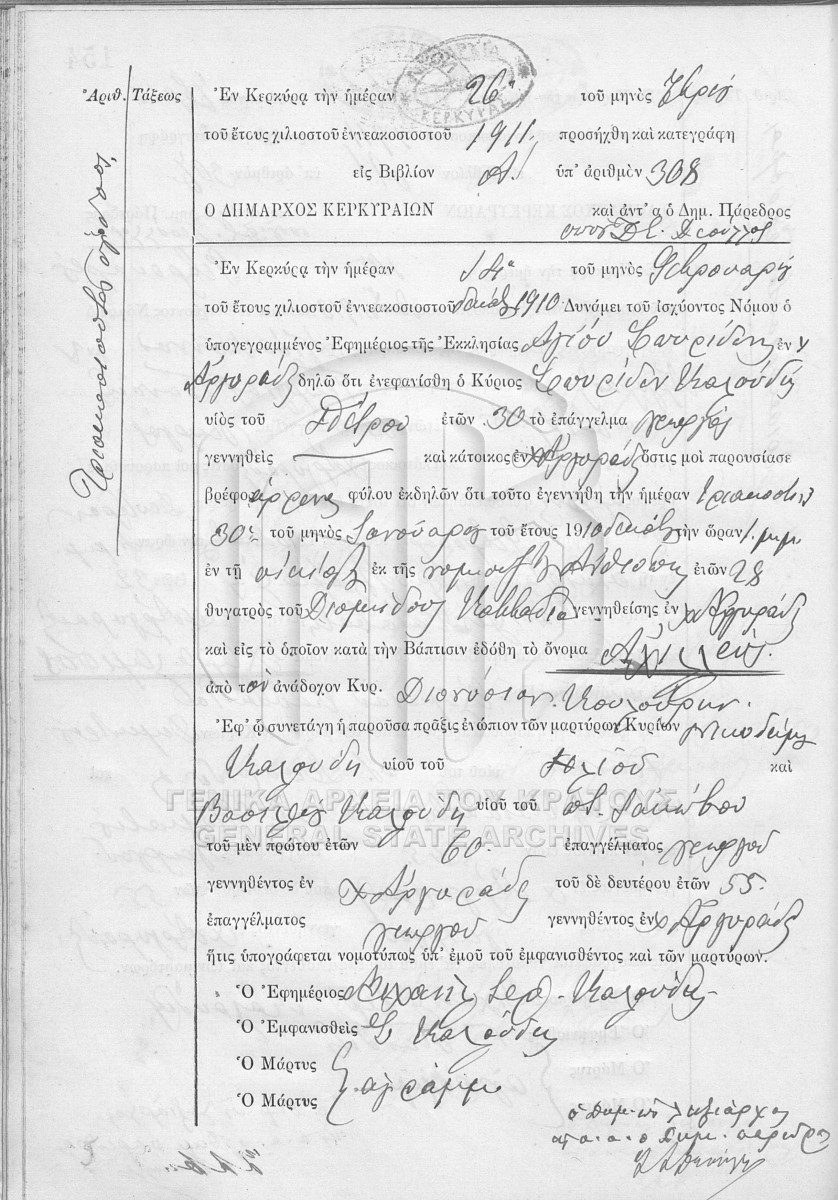 Ἀριθ. Τάξεως
Τριακοσιοστὸς ὄγδοος
ΚΕΡΚΥΡΑΣ
Ἐν Κερκύρᾳ τὴν ἡμέραν 26ην τοῦ μηνὸς
τοῦ ἔτους χιλιοστοῦ ἐννεακοσιοστοῦ 1911 προσήχθη καὶ κατεγράφη
εἰς Βιβλίον Α! ὑπ' ἀριθμὸν 308
Ο ΔΗΜΑΡΧΟΣ ΚΕΡΚΥΡΑΙΩΝ καὶ ἀντ' α ὁ Δημ. Πάρεδρος
Ἐν Κερκύρᾳ τὴν ἡμέραν 14η τοῦ μηνὸς Φεβρουαρίου
τοῦ ἔτους χιλιοστοῦ ἐννεακοσιοστοῦ δεκάτου 1910 Δυνάμει τοῦ ἰσχύοντος Νόμου ὁ
ὑπογεγραμμένος Ἐφημέριος τῆς Ἐκκλησίας Ἁγίου Σπυρίδωνος ἐν χ
Ἀργυράδες δηλῶ ὅτι ἐνεφανίσθη ὁ Κύριος Σπυρίδων Καλούδης
υἱὸς τοῦ Πέτρου ἐτῶν 30 τὸ ἐπάγγελμα γεωργὸς
γεννηθεὶς καὶ κάτοικος ἐν χ Ἀργυράδες ὅστις μοὶ παρουσίασε
βρέφος ἄρρενος φύλου ἐκδηλῶν ὅτι τοῦτο ἐγεννήθη τὴν ἡμέραν τριακοστὴν
30ην τοῦ μηνὸς Ἰανουαρίου τοῦ ἔτους 1910 δεκάτου τὴν ὥραν 1 μ.μ.
ἐν τῇ οἰκίᾳ ἐκ τῆς νομίμου ἐτῶν 28
θυγατρὸς τοῦ Διομήδους Καββαδία γεννηθείσης ἐν χ Ἀργυράδες
καὶ εἰς τὸ ὁποῖον κατὰ τὴν Βάπτισιν ἐδόθη τὸ ὄνομα Ἀχιλλεύς.
ἀπὸ τὸν ἀνάδοχον Κυρ. Διονύσιον
Ἐφ' ᾧ συνετάγη ἡ παροῦσα πρᾶξις ἐνώπιον τῶν μαρτύρων Κυρίων Νικοδήμου
Καλούδη υἱοῦ τοῦ Ἠλιοῦ καὶ
Βασιλείου Καλούδη υἱοῦ τοῦ π. Ἰακώβου
ΓΕΝΙΚΑ ΑΡΧΕΙΑ ΤΟΥ ΚΡΑΤΟΥΣ
GENERAL STATE ARCHIVES
τοῦ μὲν πρώτου ἐτῶν 60 ἐπαγγέλματος γεωργοῦ
γεννηθέντος ἐν χ Ἀργυράδες τοῦ δὲ δευτέρου ἐτῶν 55
ἐπαγγέλματος γεωργοῦ γεννηθέντος ἐν χ Ἀργυράδες
ἥτις ὑπογράφεται νομοτύπως ὑπ' ἐμοῦ τοῦ ἐμφανισθέντος καὶ τῶν μαρτύρων.
Ὁ Ἐφημέριος Μιχαὴλ Ἱερ. Καλούδης
Ὁ Ἐμφανισθεὶς Σ Καλούδης
Ὁ Μάρτυς
ἀγράμμ.
Ὁ Μάρτυς